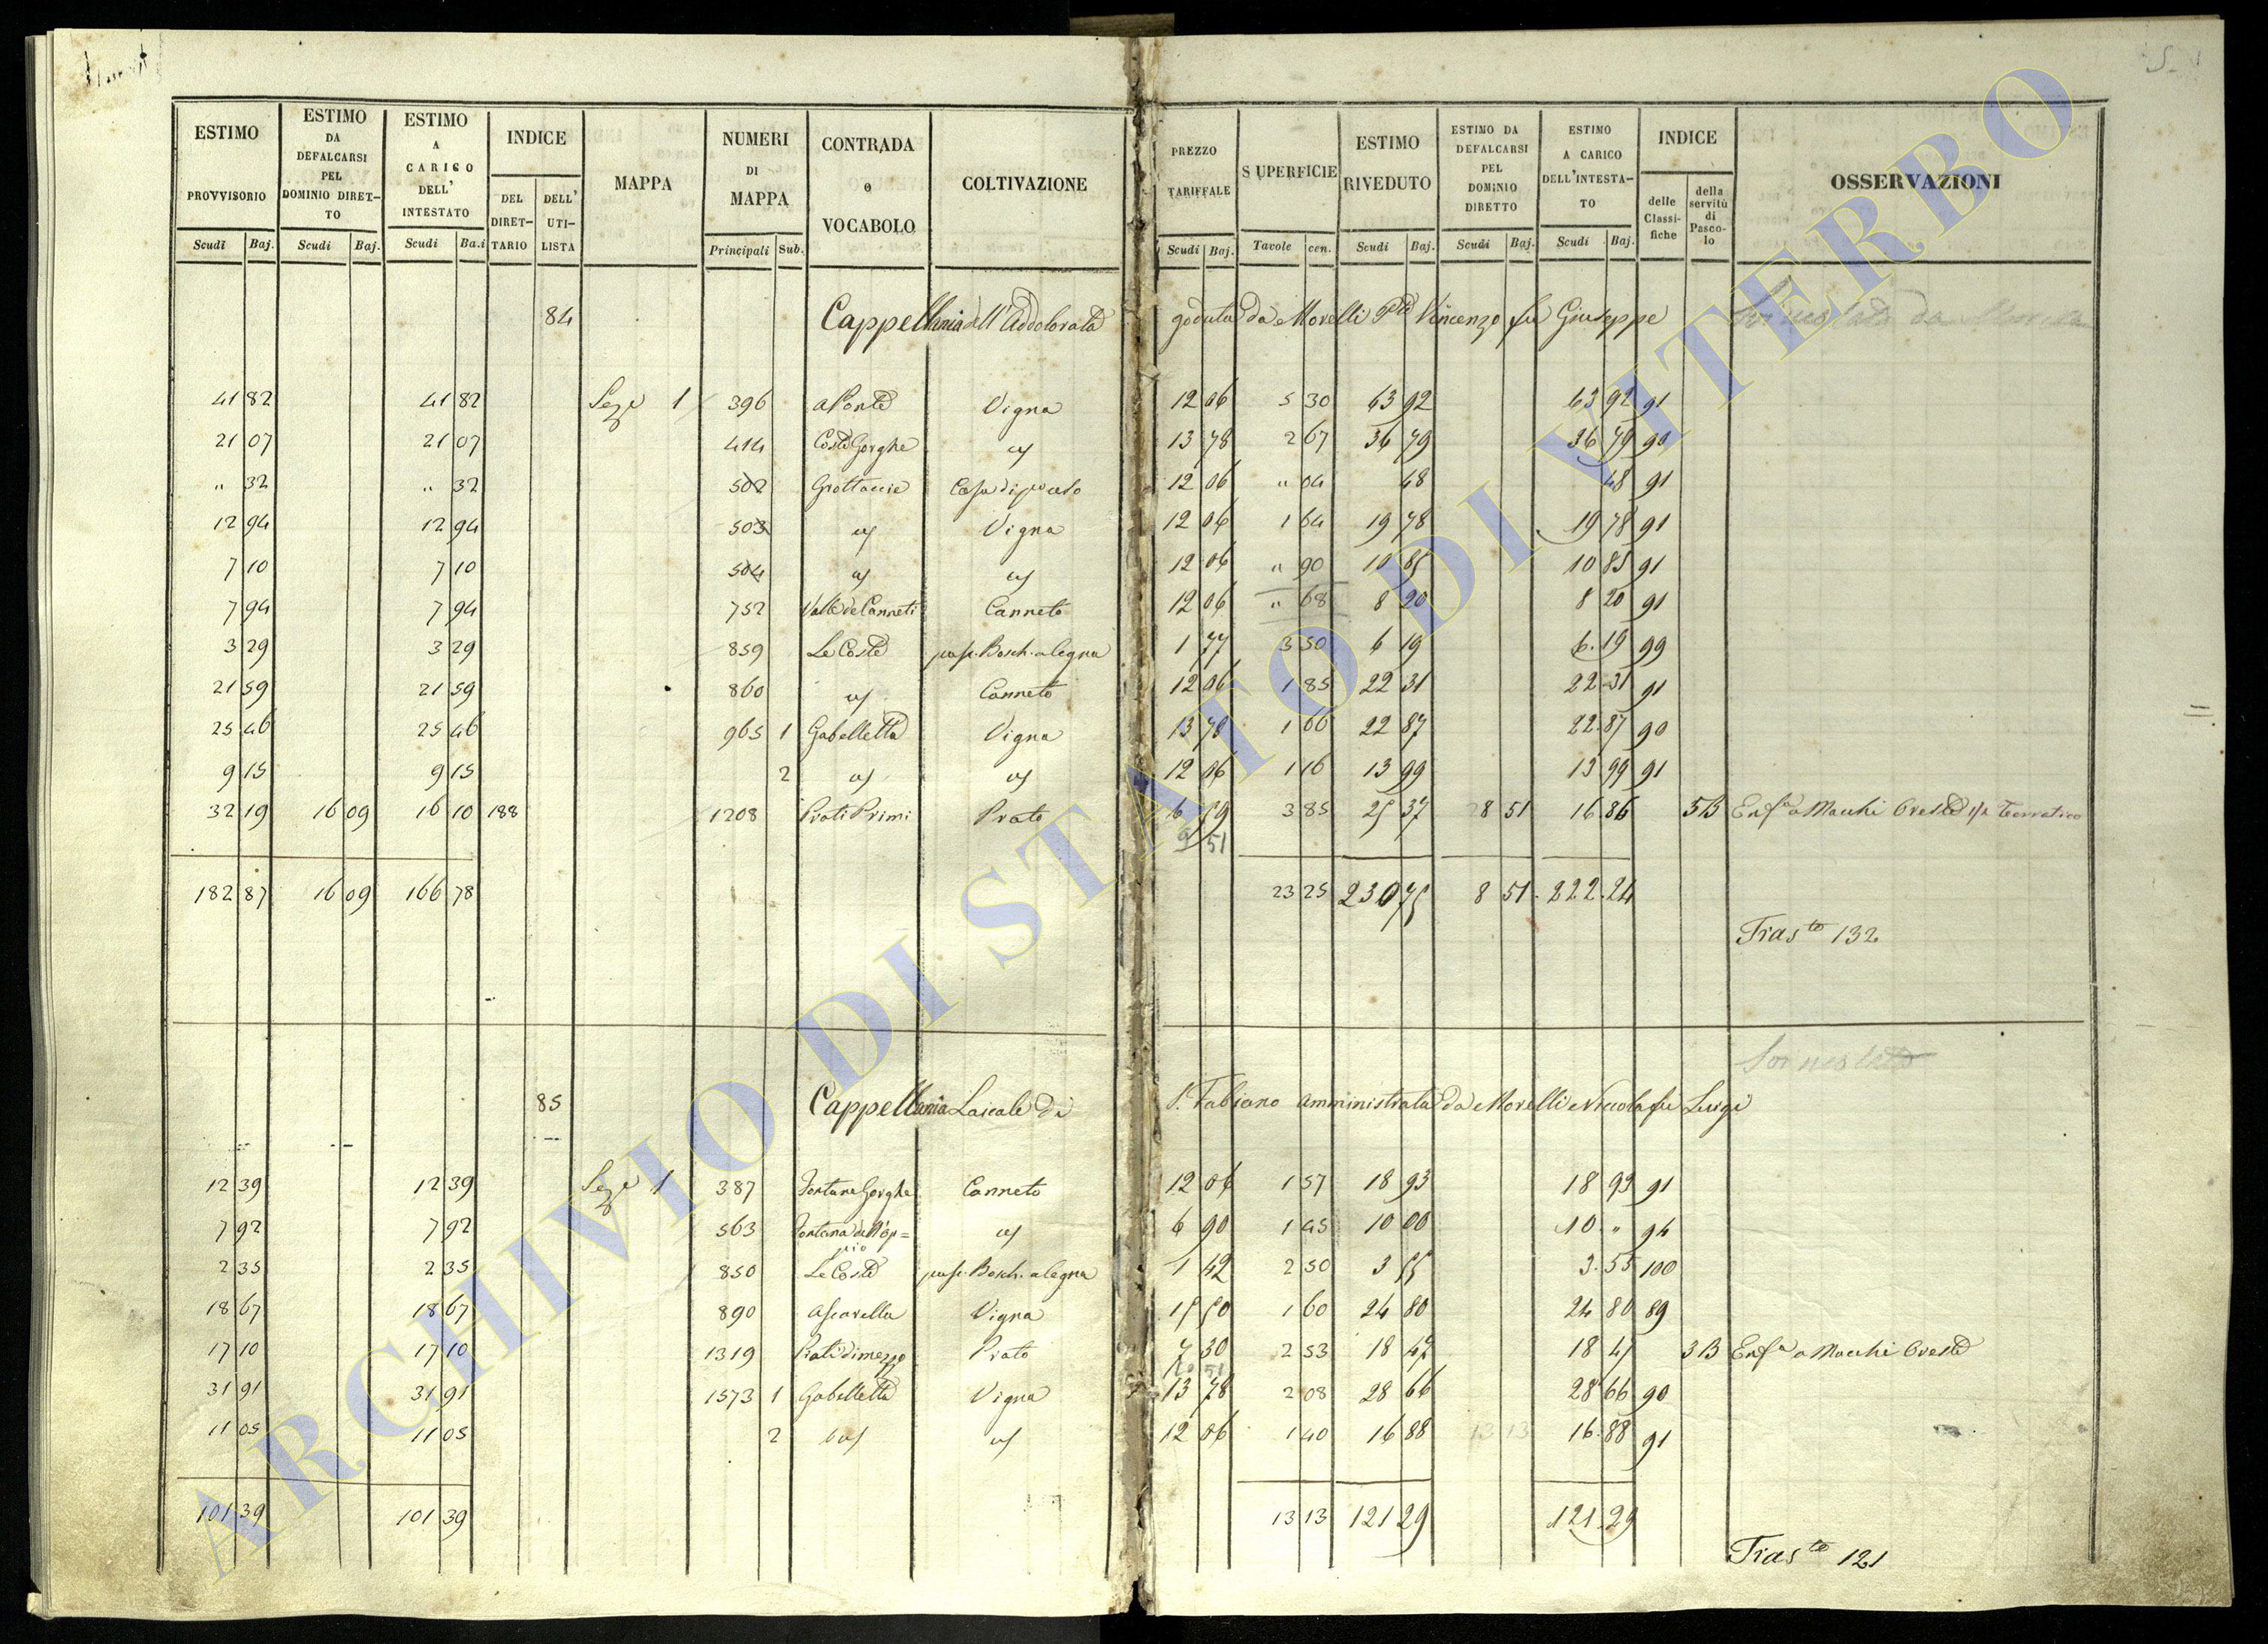 ESTIMO PROVVISORIO Scudi Baj.
ESTIMO DA DEFALCARSI PEL DOMINIO DIRET-TO Scudi Baj.
ESTIMO A CARICO DELL' INTESTATO Scudi Ba.i
INDICE DEL DIRET-TARIO DELL' UTI-LISTA
MAPPA
NUMERI DI MAPPA Principali Sub.
CONTRADA o VOCABOLO
COLTIVAZIONE
PREZZO TARIFFALE Scudi Baj.
SUPERFICIE Tavole cen.
ESTIMO RIVEDUTO Scudi Baj.
ESTIMO DA DEFALCARSI PEL DOMINIO DIRETTO Scudi Baj.
ESTIMO A CARICO DELL'INTESTA-TO Scudi Baj.
INDICE delle Classi-fiche della servitù di Pasco-lo
OSSERVAZIONI
84 Cappellania dell'Addolorata goduta da Morelli Vincenzo fu Giuseppe
41 82 41 82 Seze 1 396 a Ponte Vigna 12 06 5 30 63 92 63 92 91
21 07 21 07 414 Coste Gorghe 13 78 2 67 36 79 36 79 90
" 32 " 32 502 Grottaccie 12 06 " 04 48 48 91
12 94 12 94 503 Vigna 12 06 1 64 19 78 19 78 91
7 10 7 10 504 12 06 " 90 10 85 10 85 91
7 94 7 94 752 Valle de Canneti Canneto 12 06 " 68 8 20 8 20 91
3 29 3 29 859 Le Coste pasc. Bosch. a legna 1 77 3 50 6 19 6.19 99
21 59 21 59 860 Canneto 12 06 1 85 22 31 22 31 91
25 46 25 46 965 1 Gabelletta Vigna 13 78 1 66 22 87 22.87 90
9 15 9 15 2 12 06 1 16 13 99 13 99 91
32 19 16 09 16 10 188 1208 Prati Primi Prato 6 59 3 85 25 37 8 51 16 86 5B Enfa a Macchi Oreste Terratico
9 51
182 87 16 09 166 78 23 25 230 75 8 51 222.24
Trasto 132
85 Cappellania Laicale di S. Fabiano amministrata da Morelli Niccola fu Luigi
12 39 12 39 Seze 1 387 Fontana Gorghe Canneto 12 06 1 57 18 93 18 93 91
7 92 7 92 563 6 90 1 45 10 00 10 " 94
2 35 2 35 850 Le Coste pasc. Bosch. a legna 1 42 2 50 3 55 3.55 100
18 67 18 67 890 Ascarella Vigna 15 50 1 60 24 80 24 80 89
17 10 17 10 1319 Prati di mezzo Prato 7 30 2 53 18 47 18 47 3B Enfa a Macchi Oreste
31 91 31 91 1573 1 Gabelletta Vigna 13 78 2 08 28 66 28 66 90
11 05 11 05 2 12 06 1 40 16 88 16.88 91
101 39 101 39 13 13 121 29 121.29
Trasto 121
ARCHIVIO DI STATO DI VITERBO